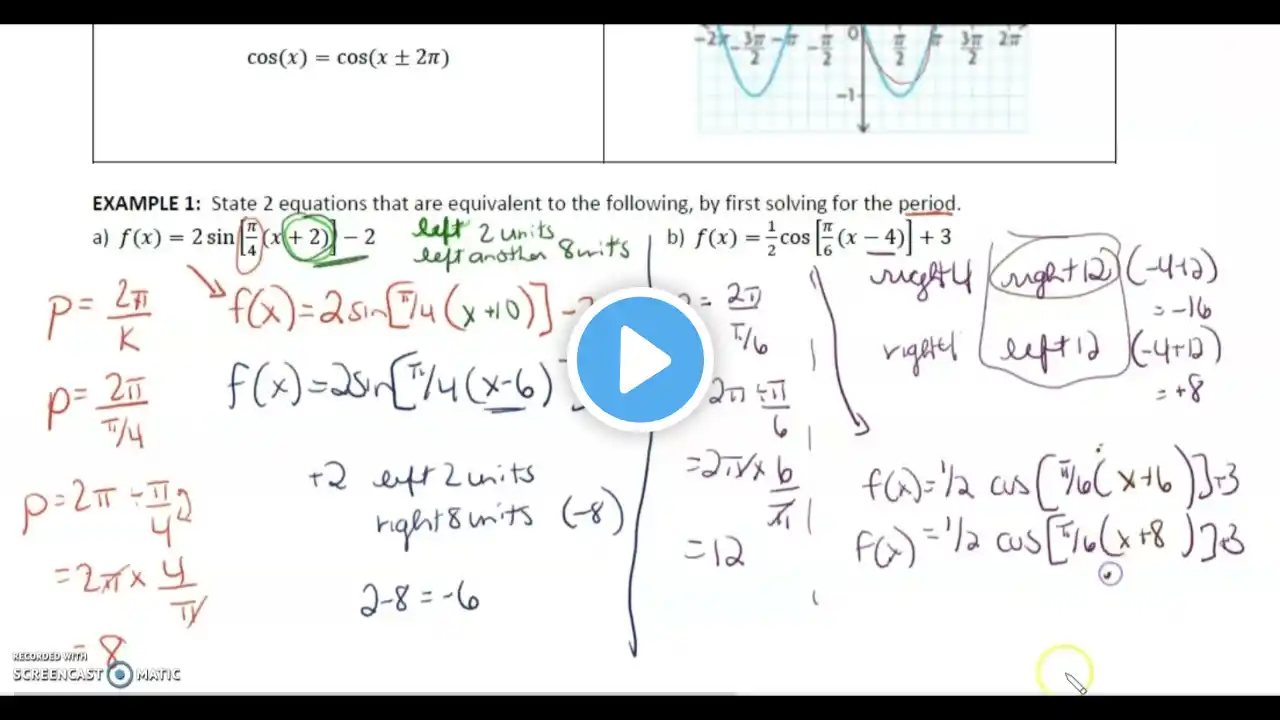 cos(x) = cos(x ± 2π)
-2π -3π/2 -π -π/2 0 π/2 π 3π/2 2π
-1
EXAMPLE 1: State 2 equations that are equivalent to the following, by first solving for the period.
a) f(x) = 2 sin[π/4(x + 2)] − 2
left 2 units
left another 8 units
P = 2π/K
P = 2π/π/4
P = 2π ÷ π/4
= 2π × 4/π
= 8
f(x) = 2sin[π/4(x+10)] -2
f(x) = 2sin[π/4(x-6)
+2 left 2 units
right 8 units (-8)
2-8 = -6
b) f(x) = 1/2 cos[π/6(x − 4)] + 3
= 2π/π/6
2π ÷ π/6
= 2π × 6/π
= 12
right 4 right 12 (-4+12)
= -16
right 4 left 12 (-4+12)
= +8
f(x) = 1/2 cos[π/6(x+6)]+3
f(x) = 1/2 cos[π/6(x+8)]+3
RECORDED WITH
SCREENCAST MATIC